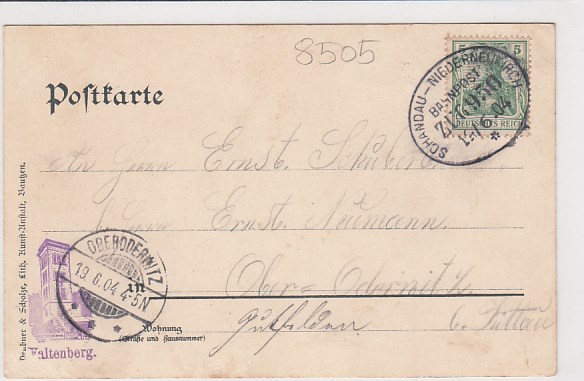 8505
5 5
SCHANDAU-NIEDERNEUKIRCH
BAHNPOST
ZUG 950
19 6 04
DEUTSCHES REICH
Postkarte
Herrn Ernst
Ernst Neumann
OBERODERWITZ
19.6.04 4-5N
in Ober-Oderwitz
Wohnung
(Straße und Hausnummer)
b. Zittau
Valtenberg.
& Scholze, Lith. Kunst-Anstalt, Bautzen.